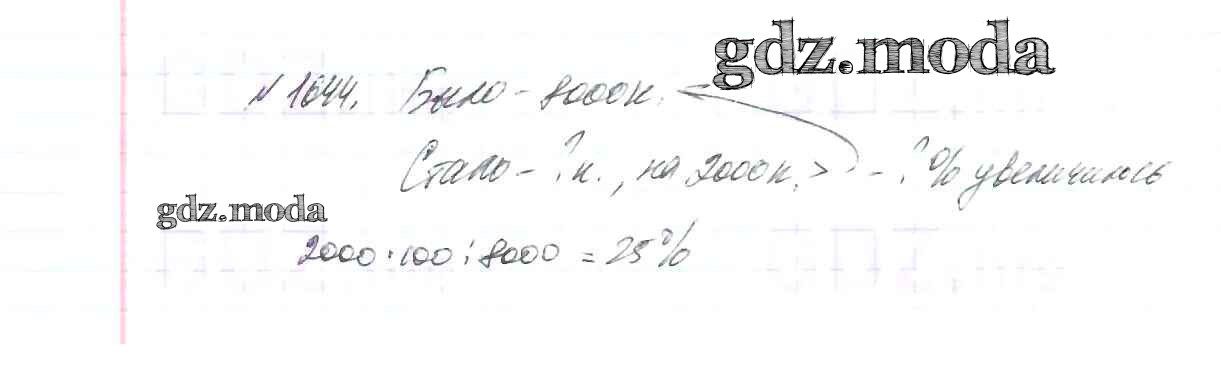 gdz.moda
№ 1644. Было - 8000к.
Стало - ? к., на 2000к. > - ? % увеличилось
gdz.moda
2000 · 100 : 8000 = 25%